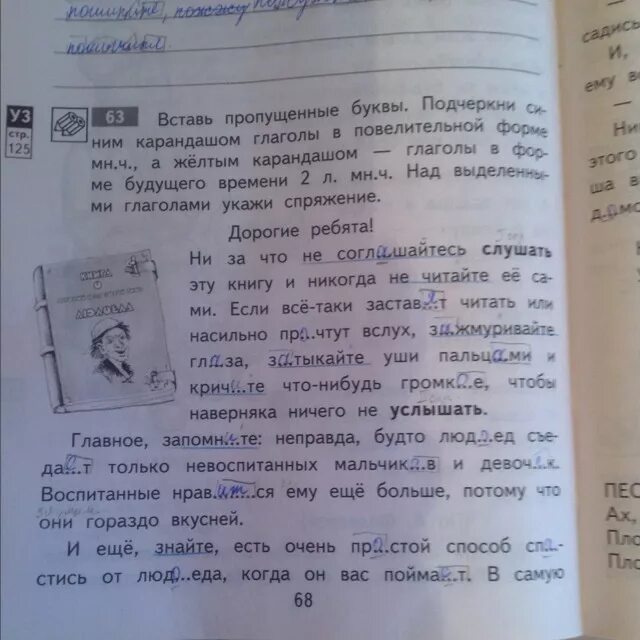 пошипите, похожу
пошипим.
УЗ
стр.
125
63 Вставь пропущенные буквы. Подчеркни си-
ним карандашом глаголы в повелительной форме
мн.ч., а жёлтым карандашом — глаголы в фор-
ме будущего времени 2 л. мн.ч. Над выделенны-
ми глаголами укажи спряжение.
Дорогие ребята!
Ни за что не соглашайтесь слушать
эту книгу и никогда не читайте её са-
ми. Если всё-таки застав..т читать или
насильно пр..чтут вслух, зажмуривайте
глаза, затыкайте уши пальцами и
крич..те что-нибудь громк..е, чтобы
наверняка ничего не услышать.
КНИГА
О
ЛЮДОЕДА
Главное, запомните: неправда, будто люд..ед съе-
да..т только невоспитанных мальчик..в и девоч..к.
Воспитанные нравится ему ещё больше, потому что
они гораздо вкусней.
И ещё, знайте, есть очень простой способ спа-
стись от люд..еда, когда он вас пойма..т. В самую
68
садись
И,
ему во
—
Ни
этого
ша в
д.а.мо
ПЕС
Ах,
Пло
Пло